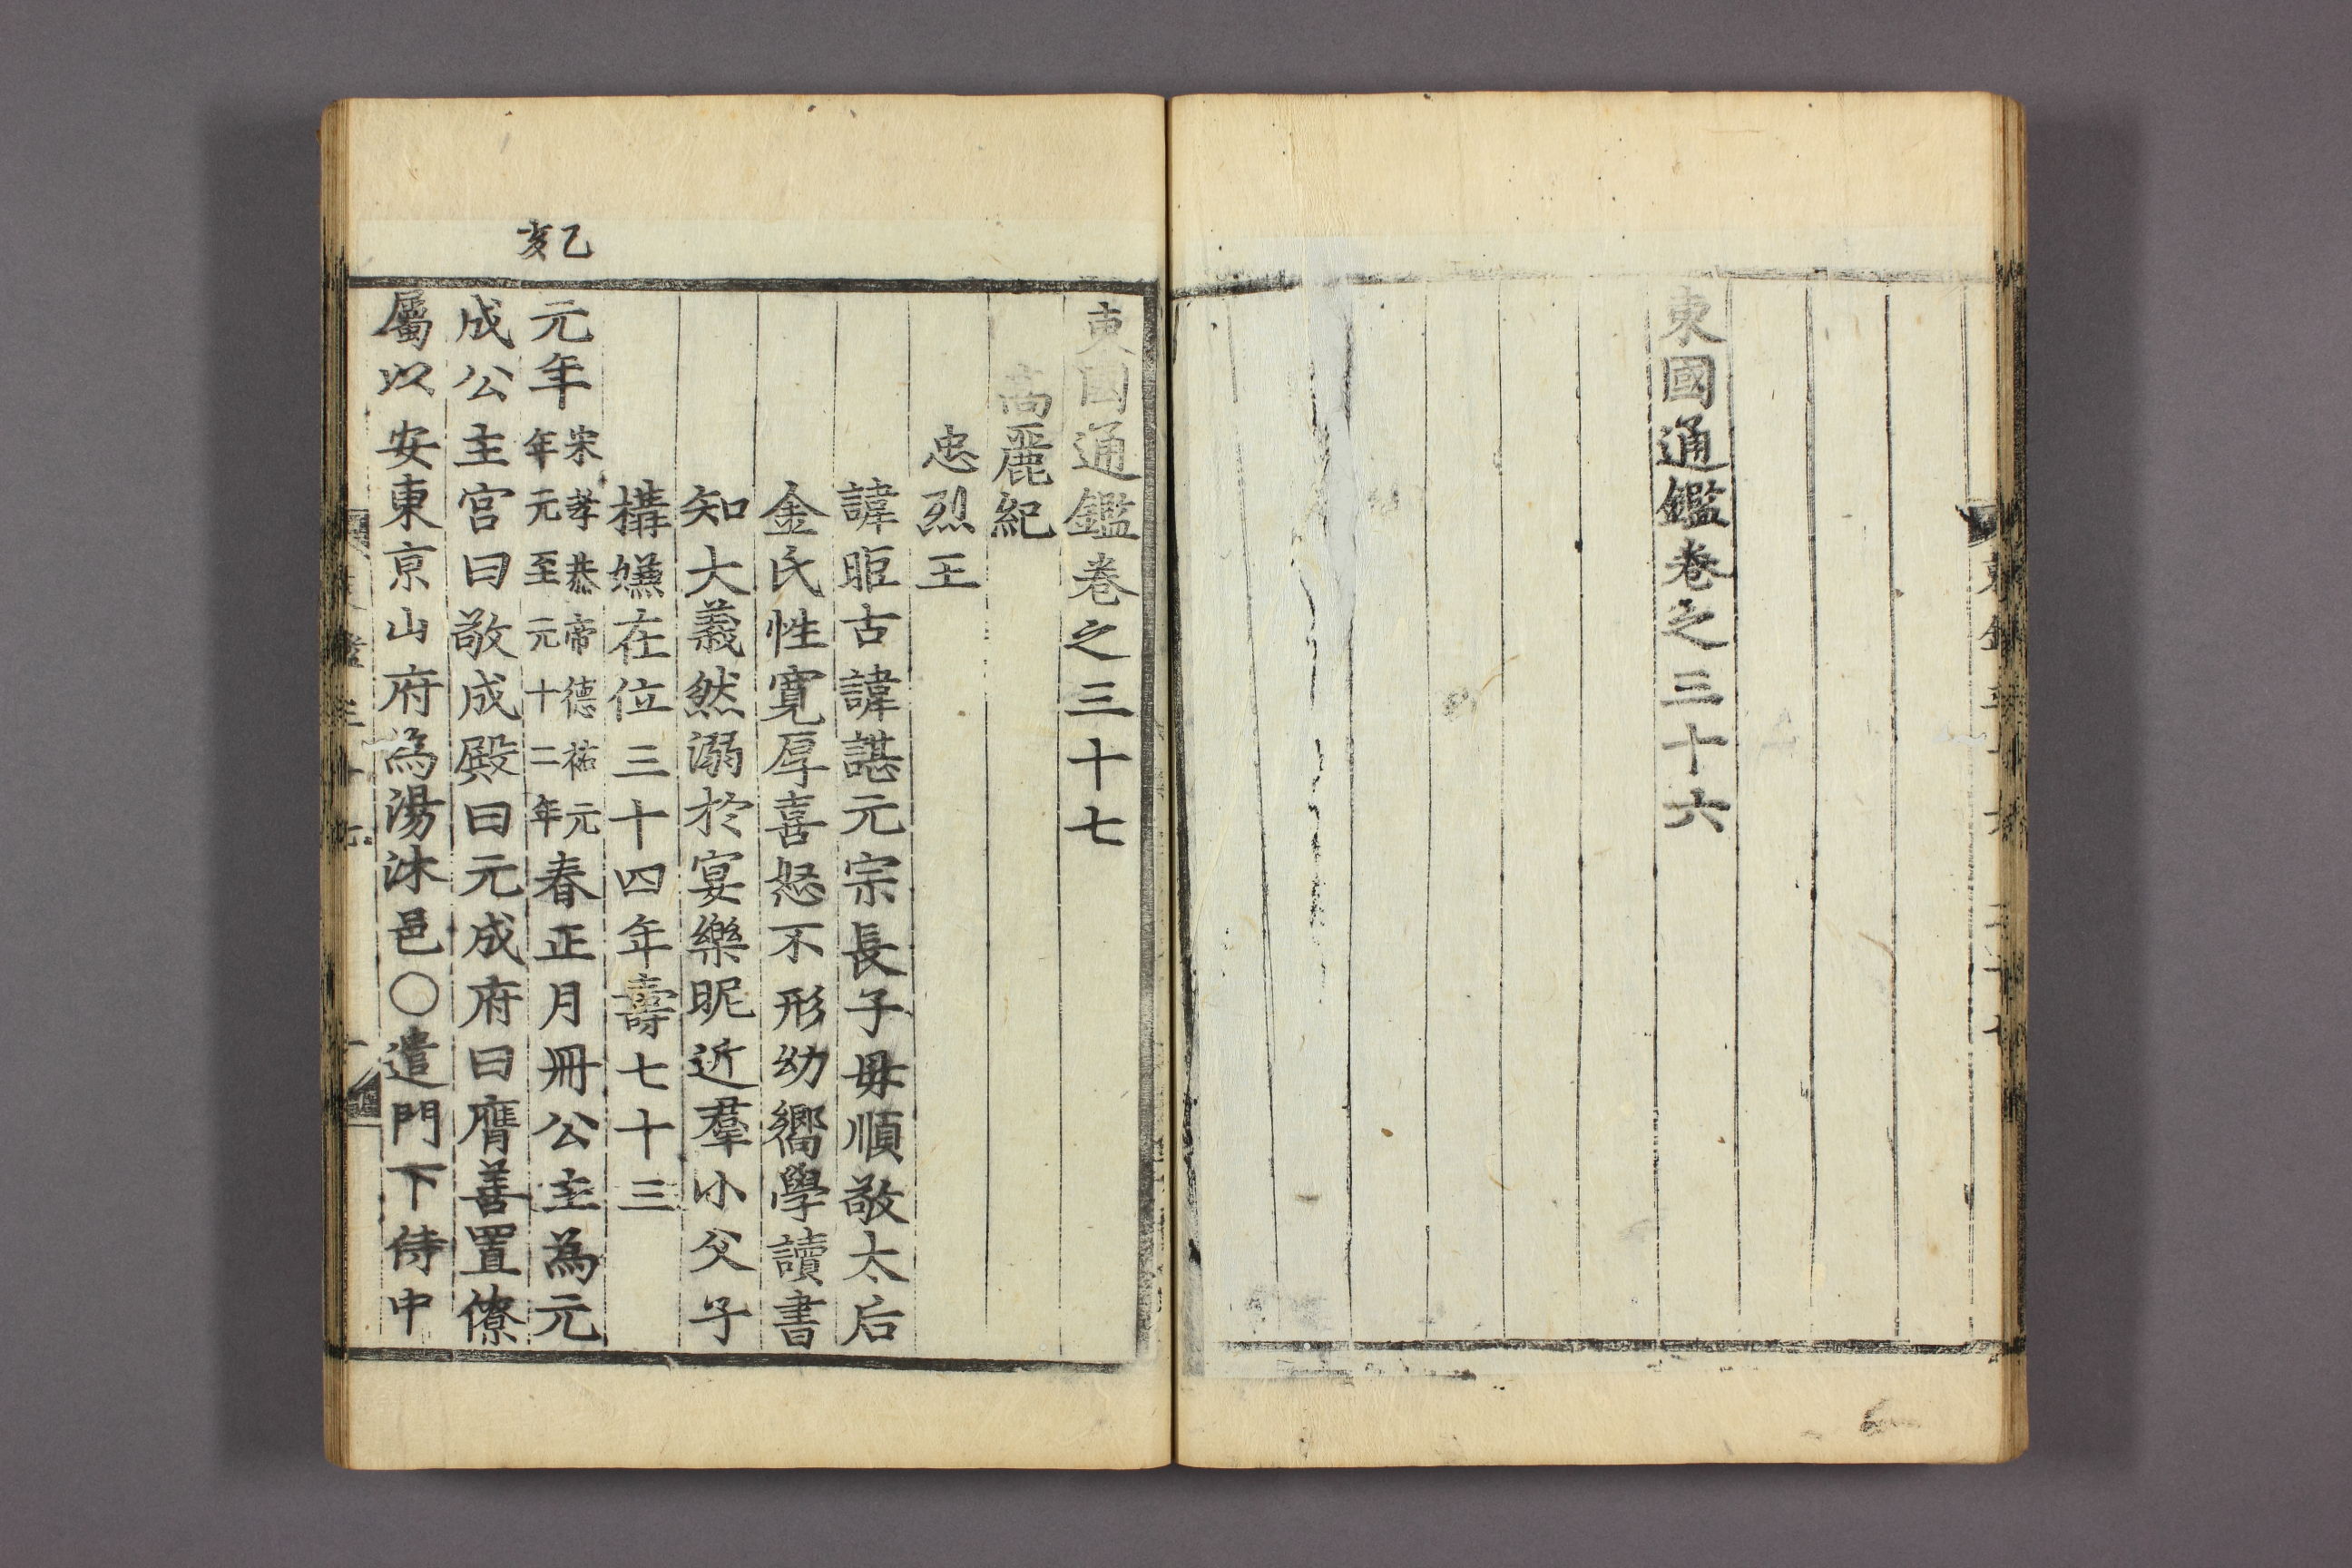 東國通鑑卷之三十六
東國通鑑卷之三十七
高麗紀
忠烈王
諱昛古諱諶元宗長子毋順敬太后
金氏性寬厚喜怒不形幼嚮學讀書
知大義然溺於宴樂昵近羣小父子
構嫌在位三十四年壽七十三
乙亥
元年宋孝恭帝德祐元年元至元十二年春正月冊公主為元
成公主宮曰敬成殿曰元成府曰膺善置僚
屬以安東京山府為湯沐邑○遣門下侍中